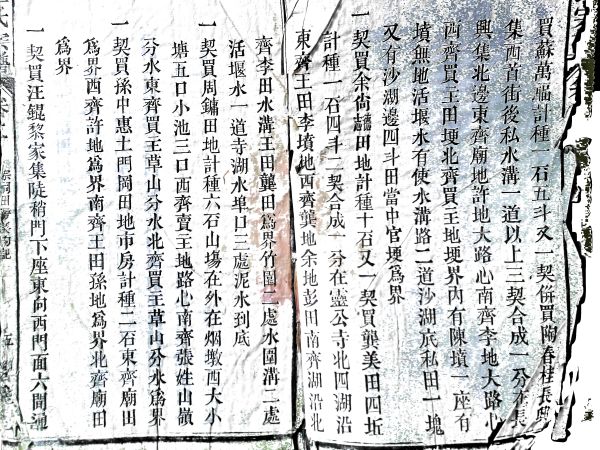 買蘇萬福計種二石五斗又一契併買陶春桂長邱
集西首街後私水溝一道以上三契合成一分在長
興集北邊東齊廟地許地大路心南齊李地大路心
西齊買王田埂北齊買王地埂界內有陳墳一座有
墳無地活堰水有使水溝路二道沙湖底私田一塊
又有沙湖邊四斗田當中官埂為界
一契買余尚喆田地計種十石又一契買龔美田四坵
計種一石四斗二契合成一分在靈公寺北四湖沿
東齊王田李墳地西齊龔地余地彭田南齊湖沿北
齊李田水溝王田龔田為界竹園一處水圍溝二處
活堰水一道寺湖水埠口三處泥水到底
一契買周鏞田地計種六石山場在外在烟墩西大小
塘五口小池三口西齊賣王地路心南齊張姓山嶺
分水東齊買王草山分水北齊買王草山分水為界
一契買孫中惠土門岡田地市房計種二石東齊廟田
為界西齊許地為界南齊王田孫地為界北齊廟田
為界
一契買汪錕黎家集陡稍門下座東向西門面六間通
氏宗譜